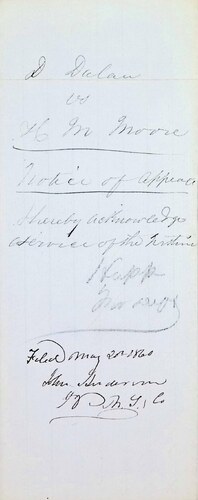 D Dulan
vs
H M Moore
Notice of Appeal
I hereby acknowledge
service of the within
Filed May 20 1860
John Anderson